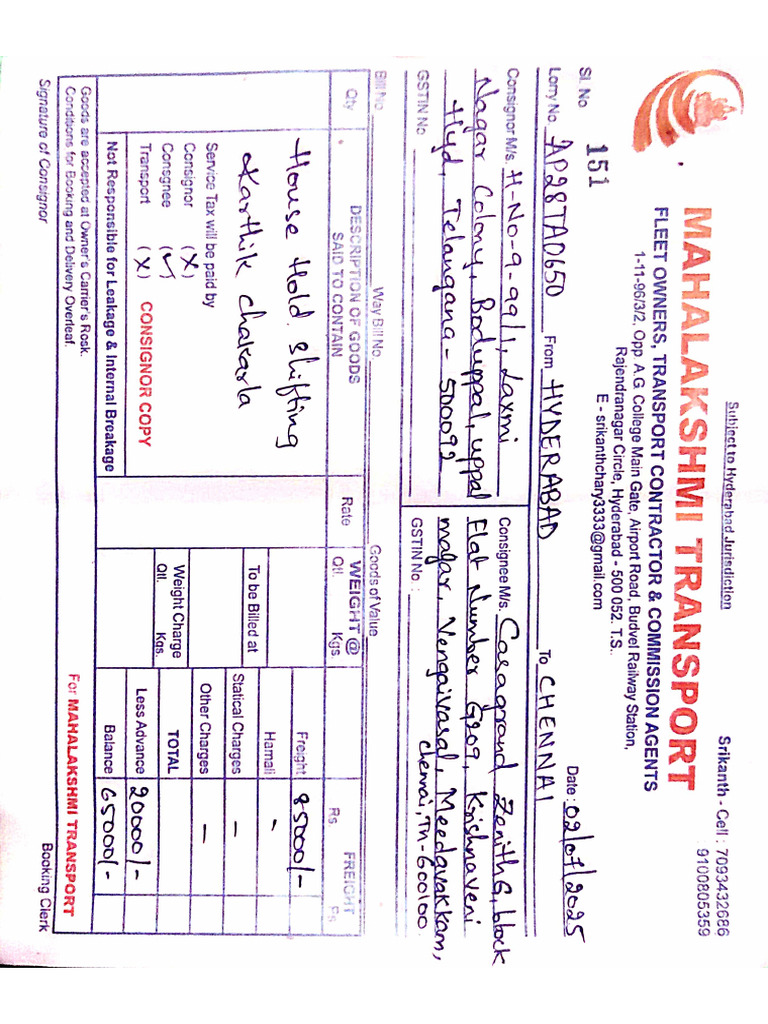 Subject to Hyderabad Jurisdiction
Srikanth - Cell : 7093432686
9100805359
MAHALAKSHMI TRANSPORT
FLEET OWNERS, TRANSPORT CONTRACTOR & COMMISSION AGENTS
1-11-96/3/2, Opp A.G. College Main Gate, Airport Road, Budvel Railway Station,
Rajendranagar Circle, Hyderabad - 500 052. T.S..
E - srikanthchary3333@gmail.com
Sl. No 151
Date : 02/07/2025
Lorry No. AP28TAD650 From HYDERABAD To CHENNAI
Consignor M/s. H-No-9-99/1, Laxmi
Nagar Colony, Boduppal, uppal
Hyd, Telangana - 500092
GSTIN No
Consignee M/s. Casagrand Zenith G, block
Flat Number G209, Krishnaveni
nagar, Vengaivasal, Meedavakkam,
chennai, TN-600100.
GSTIN No :
Bill No Way Bill No. Goods of Value
Qty
DESCRIPTION OF GOODS
SAID TO CONTAIN
Rate
WEIGHT @
Qtl. Kgs
FREIGHT
Rs Ps
House Hold. Shifting
Karthik Chakarla
Service Tax will be paid by
Consignor (X)
Consgnee (✓)
Transport (X)
CONSIGNOR COPY
Not Responsible for Leakage & Internal Breakage
To be Billed at
Weight Charge
Qll. Kgs.
Freight 85000/-
Hamali -
Statical Charges -
Other Charges -
TOTAL
Less Advance 20000/-
Balance 65000/-
Goods are accepted at Owner's Carrier's Rosk.
Conditions for Booking and Delivery Overleaf.
For MAHALAKSHMI TRANSPORT
Signature of Consignor
Booking Clerk